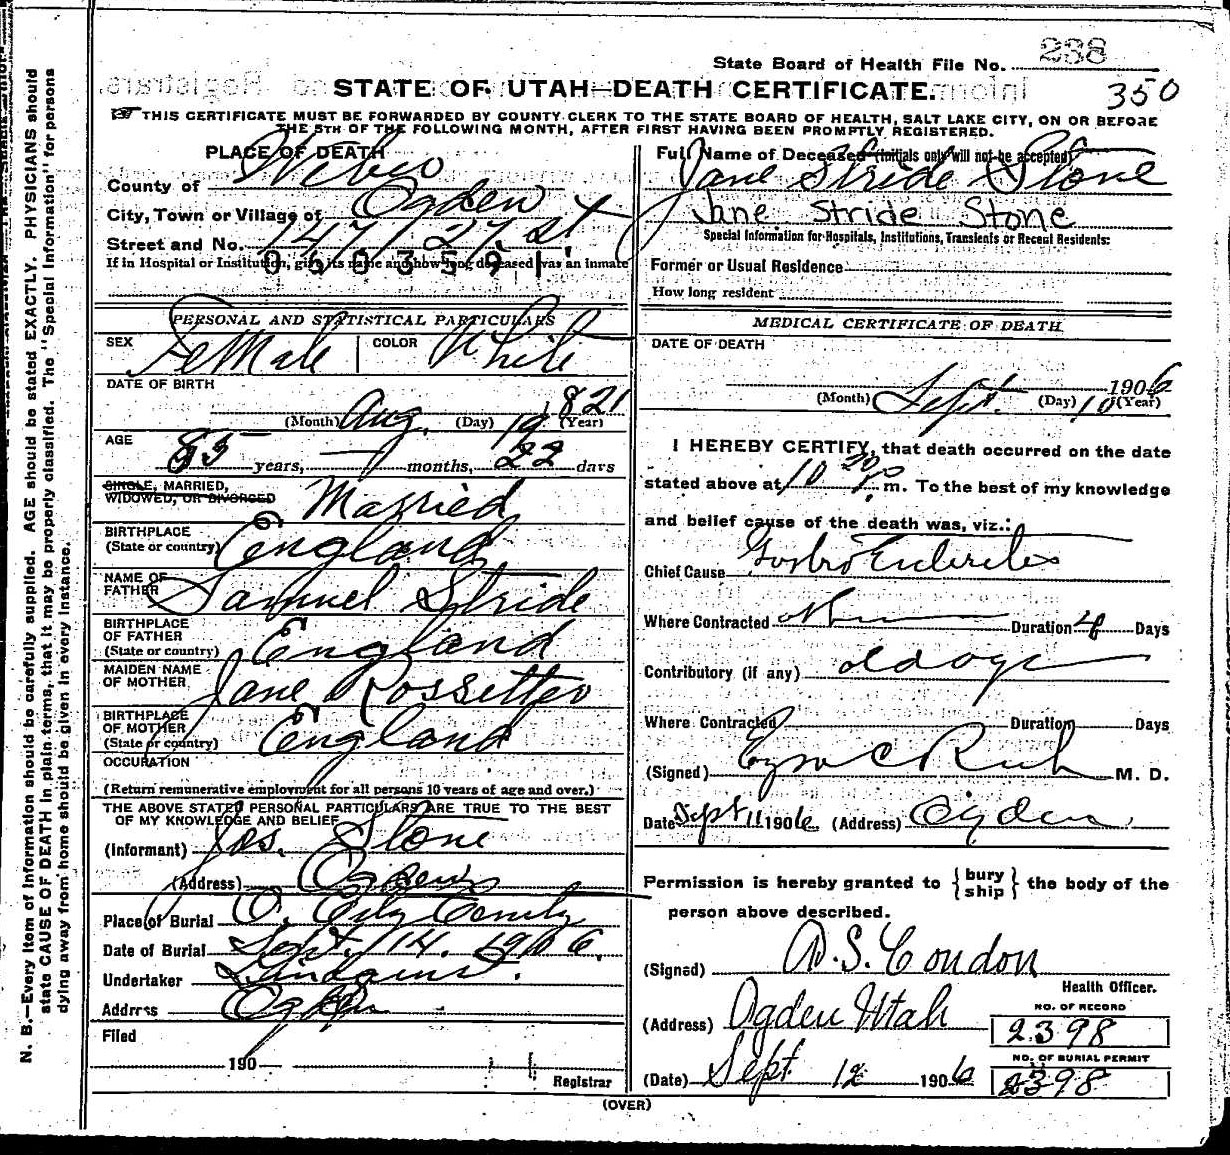 State Board of Health File No. 238
350
STATE OF UTAH—DEATH CERTIFICATE.
THIS CERTIFICATE MUST BE FORWARDED BY COUNTY CLERK TO THE STATE BOARD OF HEALTH, SALT LAKE CITY, ON OR BEFORE
THE 5TH OF THE FOLLOWING MONTH, AFTER FIRST HAVING BEEN PROMPTLY REGISTERED.
PLACE OF DEATH
County of Weber
City, Town or Village of Ogden
Street and No. 147 27 St
If in Hospital or Institution, give its name and how long deceased was an inmate
0603591
PERSONAL AND STATISTICAL PARTICULARS
SEX Female COLOR White
DATE OF BIRTH
(Month) Aug. (Day) 19 1821 (Year)
AGE
85 years, — months, 22 days
SINGLE, MARRIED,
WIDOWED, OR DIVORCED Married
BIRTHPLACE
(State or country) England
NAME OF
FATHER Samuel Stride
BIRTHPLACE
OF FATHER
(State or country) England
MAIDEN NAME
OF MOTHER Jane Rossetter
BIRTHPLACE
OF MOTHER
(State or country) England
OCCUPATION
(Return remunerative employment for all persons 10 years of age and over.)
THE ABOVE STATED PERSONAL PARTICULARS ARE TRUE TO THE BEST
OF MY KNOWLEDGE AND BELIEF
(Informant) Jas. Stone
(Address) Ogden
Place of Burial O. City Cemity
Date of Burial Sept. 14. 1906.
Undertaker Lindquist.
Address Ogden
Filed
190
Registrar
Full Name of Deceased (Initials only will not be accepted)
Jane Stride Stone
Jane Stride Stone
Special Information for Hospitals, Institutions, Transients or Recent Residents:
Former or Usual Residence
How long resident
MEDICAL CERTIFICATE OF DEATH
DATE OF DEATH
1906
(Month) Sept. (Day) 10 (Year)
I HEREBY CERTIFY, that death occurred on the date
stated above at 10 20 P. m. To the best of my knowledge
and belief cause of the death was, viz.:
Chief Cause Gastro Enteritis
Where Contracted Duration 4 Days
Contributory (if any) old age
Where Contracted Duration Days
(Signed) Ezra C Rich M. D.
Date Sept 11 1906 (Address) Ogden
Permission is hereby granted to { bury ship } the body of the
person above described.
(Signed) A.S. Condon
Health Officer.
(Address) Ogden Utah
NO. OF RECORD
2398
NO. OF BURIAL PERMIT
2398
(Date) Sept 12 1906
(OVER)
N. B.—Every item of information should be carefully supplied. AGE should be stated EXACTLY. PHYSICIANS should
state CAUSE OF DEATH in plain terms, that it may be properly classified. The "Special Information" for persons
dying away from home should be given in every instance.